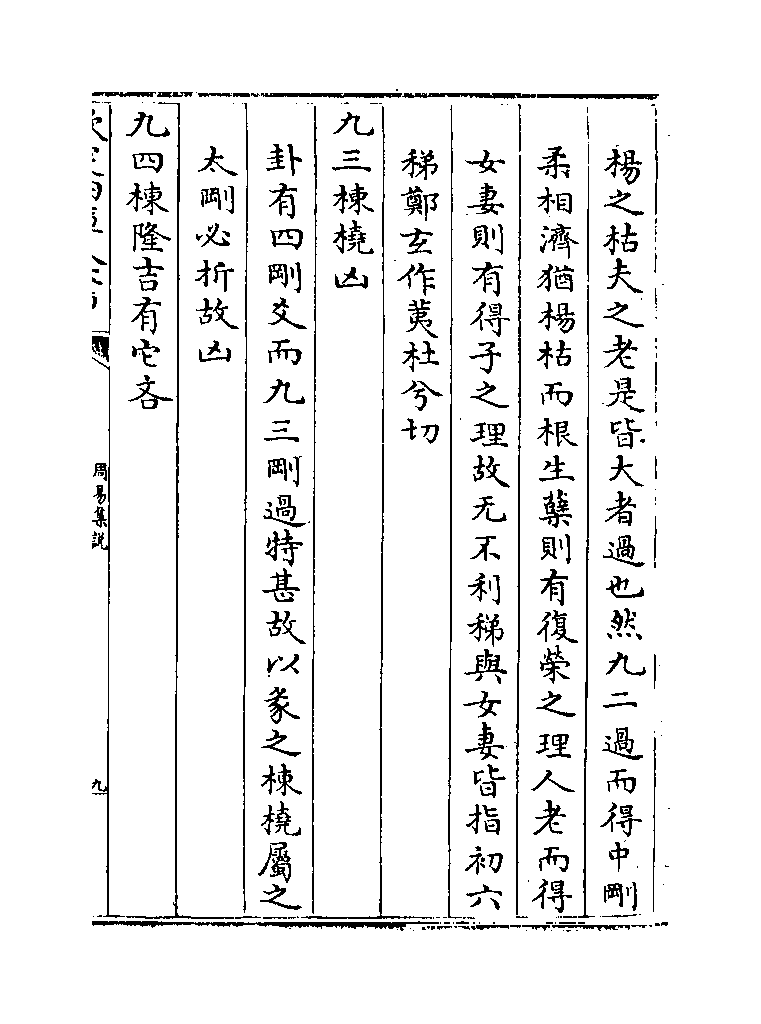 楊之枯夫之老是皆大者過也然九二過而得中剛
柔相濟猶楊枯而根生蘖則有復榮之理人老而得
女妻則有得子之理故无不利稊與女妻皆指初六
稊鄭玄作荑杜兮切
九三棟橈凶
卦有四剛爻而九三剛過特甚故以彖之棟橈屬之
太剛必折故凶
九四棟隆吉有它吝
周易集說
九